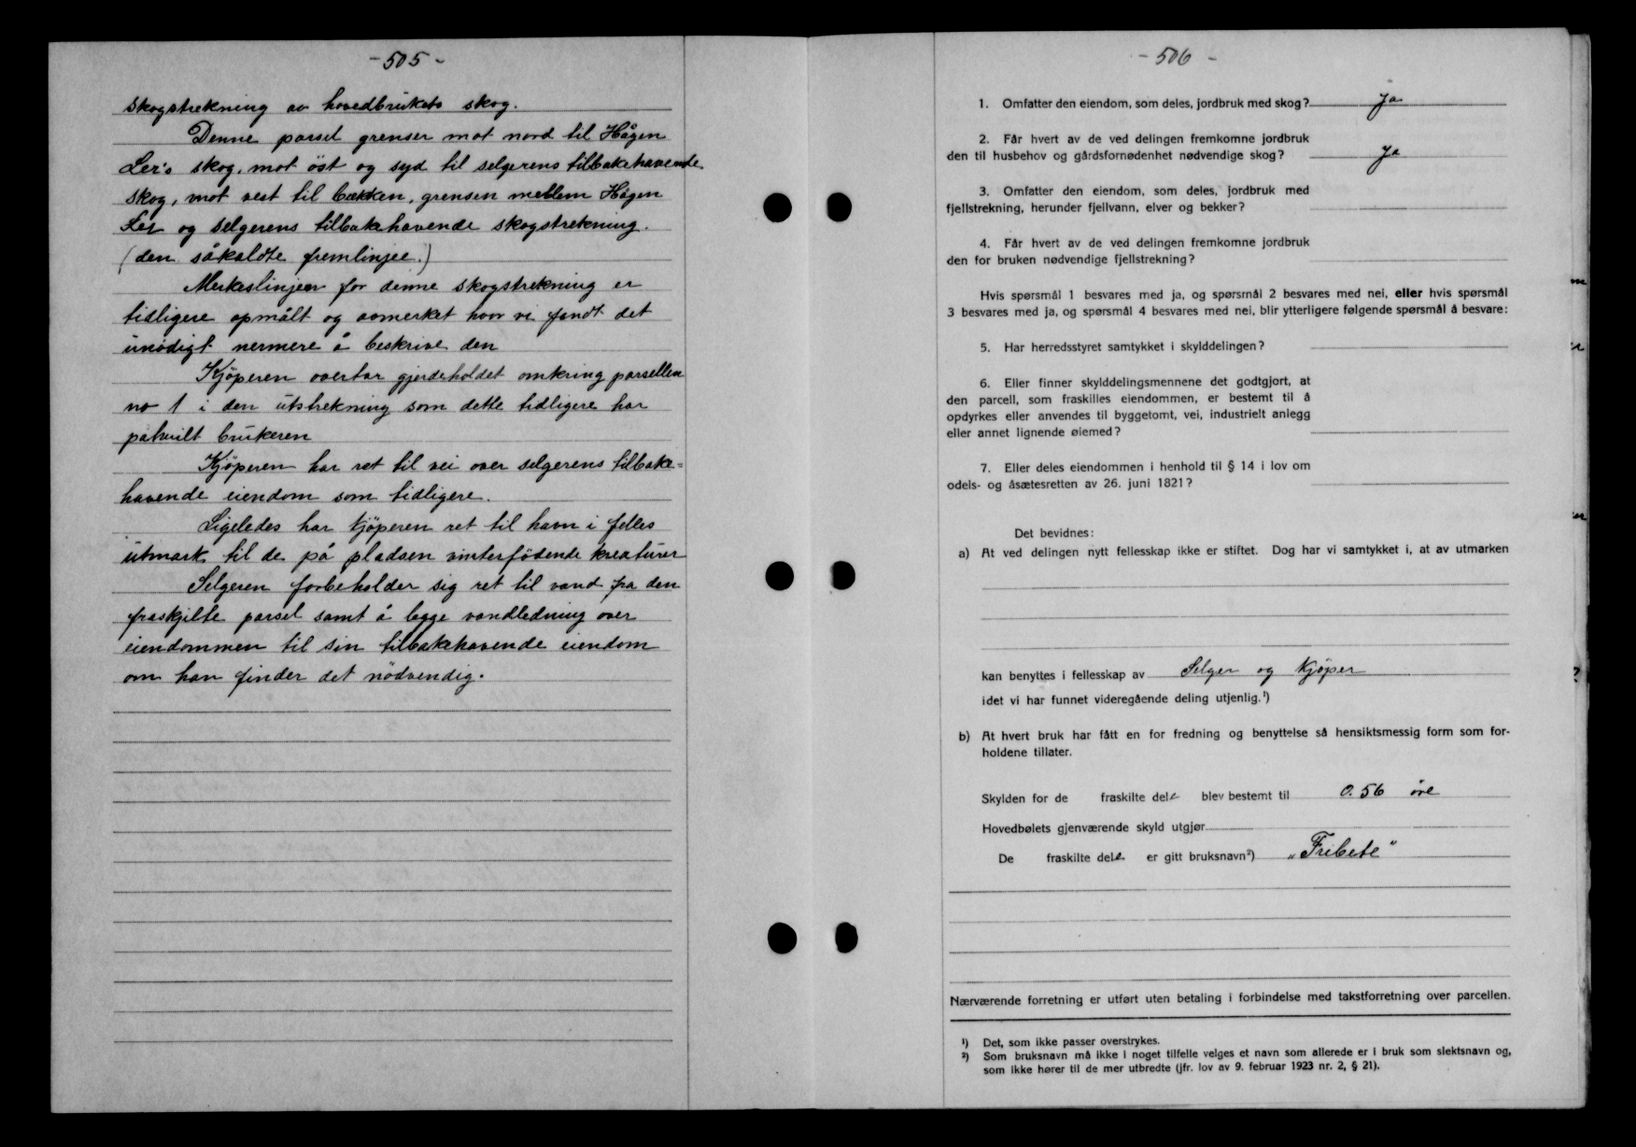 - 505 -
skogstrekning av hovedbrukets skog.
Denne parsel grenser mot nord til Hågen
Ler's skog, mot öst og syd til selgerens tilbakehavende
skog, mot vest til bækken, grensen mellem Hågen
Ler og selgerens tilbakehavende skogstrekning.
(den såkaldte fremlinjee.)
Merkeslinjeer for denne skogstrekning er
tidligere opmålt og avmerket hvor vi fandt det
unödigt nermere å beskrive den
Kjöperen overtar gjerdeholdet omkring parsellen
no 1 i den utstrekning som dette tidligere har
påhvilt brukeren
Kjöperen har ret til vei over selgerens tilbake=
havende eiendom som tidligere.
Ligeledes har kjöperen ret til havn i felles
utmark til de på pladsen vinterfödende kreaturer
Selgeren forbeholder sig ret til vand fra den
fraskjilte parsel samt å legge vandledning over
eiendommen til sin tilbakehavende eiendom
om han finder det nödvendig.
- 506 -
1. Omfatter den eiendom, som deles, jordbruk med skog? Ja
2. Får hvert av de ved delingen fremkomne jordbruk
den til husbehov og gårdsfornødenhet nødvendige skog? Ja
3. Omfatter den eiendom, som deles, jordbruk med
fjellstrekning, herunder fjellvann, elver og bekker?
4. Får hvert av de ved delingen fremkomne jordbruk
den for bruken nødvendige fjellstrekning?
Hvis spørsmål 1 besvares med ja, og spørsmål 2 besvares med nei, eller hvis spørsmål
3 besvares med ja, og spørsmål 4 besvares med nei, blir ytterligere følgende spørsmål å besvare:
5. Har herredsstyret samtykket i skylddelingen?
6. Eller finner skylddelingsmennene det godtgjort, at
den parcell, som fraskilles eiendommen, er bestemt til å
opdyrkes eller anvendes til byggetomt, vei, industrielt anlegg
eller annet lignende øiemed?
7. Eller deles eiendommen i henhold til § 14 i lov om
odels- og åsætesretten av 26. juni 1821?
Det bevidnes:
a) At ved delingen nytt fellesskap ikke er stiftet. Dog har vi samtykket i, at av utmarken
kan benyttes i fellesskap av Selger og Kjöper
idet vi har funnet videregående deling utjenlig.¹)
b) At hvert bruk har fått en for fredning og benyttelse så hensiktsmessig form som for-
holdene tillater.
Skylden for de fraskilte dele blev bestemt til 0.56 öre
Hovedbølets gjenværende skyld utgjør
De fraskilte dele er gitt bruksnavn²) „Fribete"
Nærværende forretning er utført uten betaling i forbindelse med takstforretning over parcellen.
¹) Det, som ikke passer overstrykes.
²) Som bruksnavn må ikke i noget tilfelle velges et navn som allerede er i bruk som slektsnavn og,
som ikke hører til de mer utbredte (jfr. lov av 9. februar 1923 nr. 2, § 21).